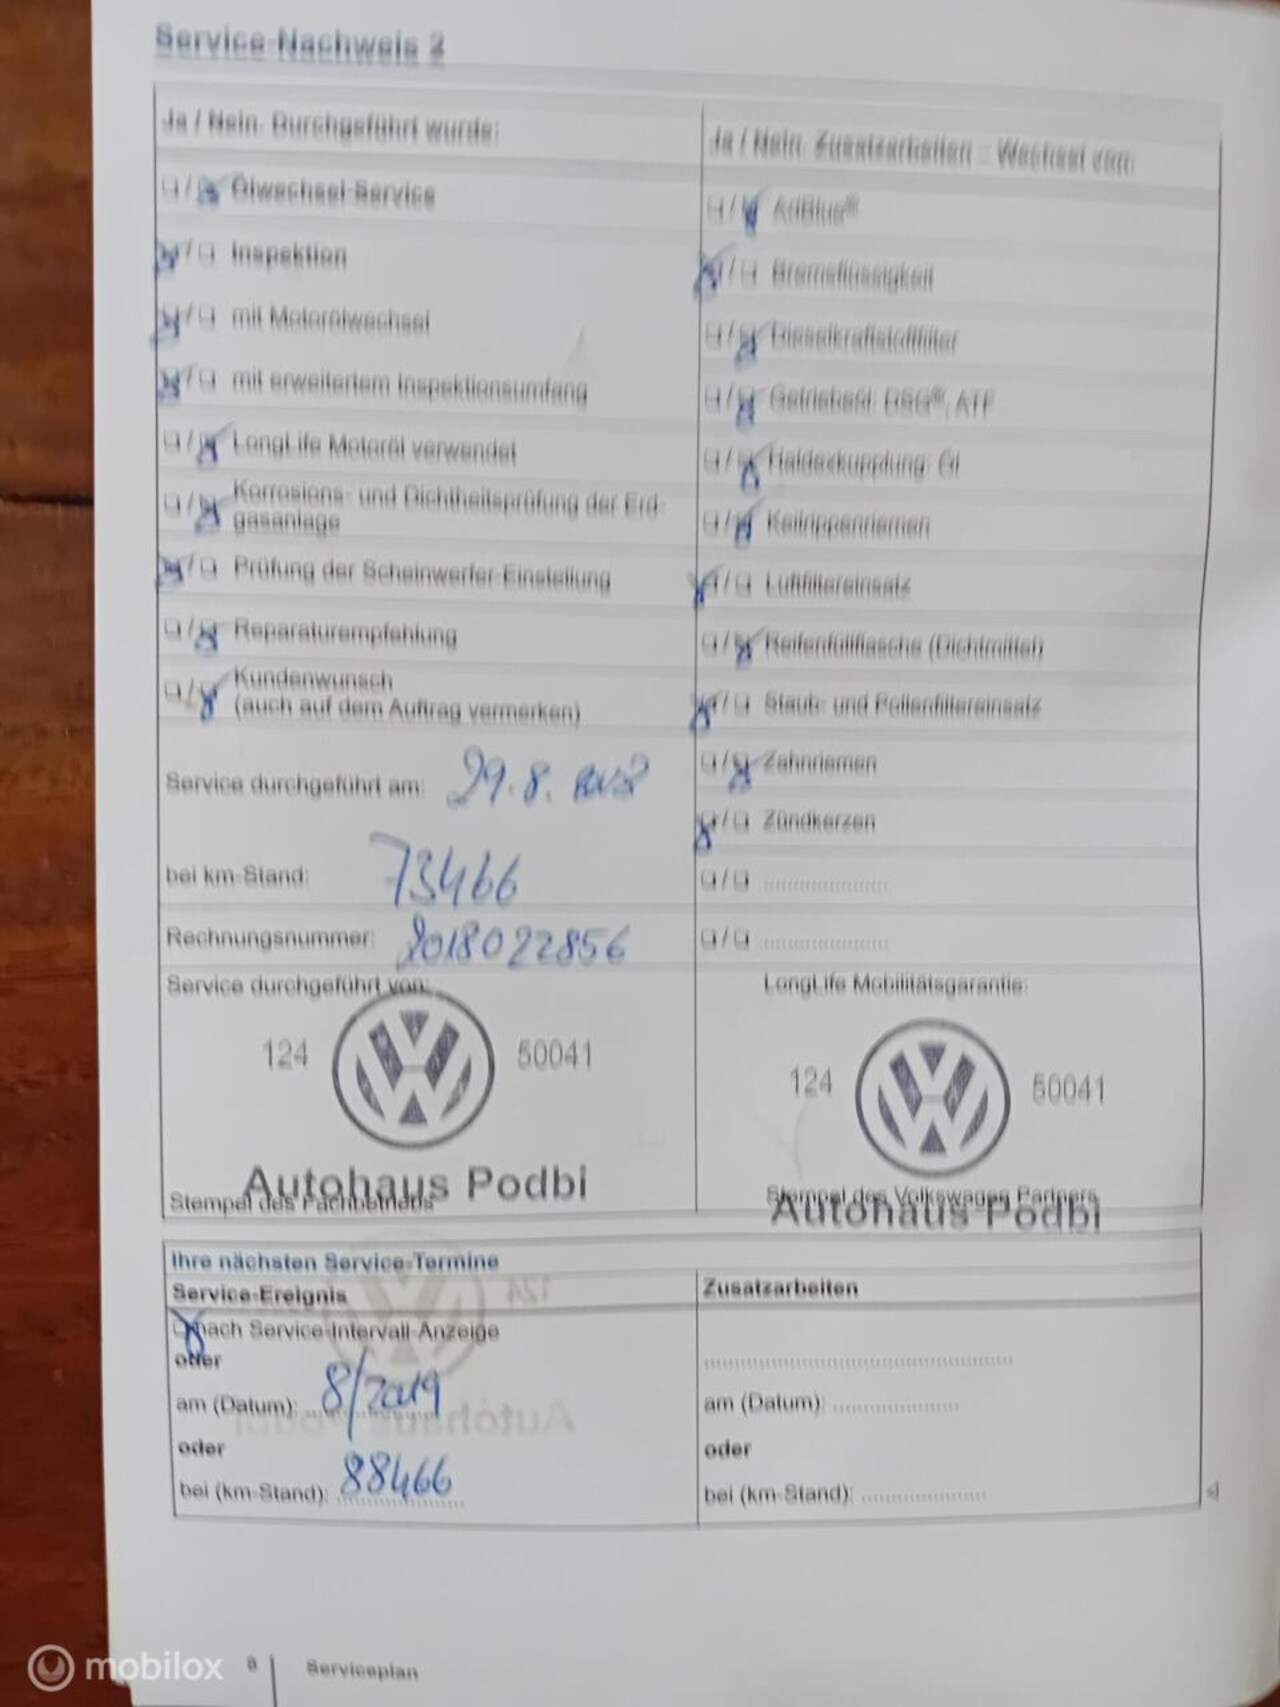 Service-Nachweis 2
Ja / Nein: Durchgeführt wurde:
Ölwechsel-Service
Inspektion
mit Motorölwechsel
mit erweitertem Inspektionsumfang
LongLife Motoröl verwendet
Korrosions- und Dichtheitsprüfung der Erd-
gasanlage
Prüfung der Scheinwerfer-Einstellung
Reparaturempfehlung
Kundenwunsch
(auch auf dem Auftrag vermerken)
Service durchgeführt am: 29.8.
bei km-Stand: 73466
Rechnungsnummer: 2018022856
Service durchgeführt von:
124 50041
Autohaus Podbi
Stempel des Fachbetriebs
Ja / Nein: Zusatzarbeiten - Wechsel von:
AdBlue®
Bremsflüssigkeit
Dieselkraftstofffilter
Getriebeöl: DSG®, ATF
Haldexkupplung: Öl
Keilrippenriemen
Luftfiltereinsatz
Reifenfüllflasche (Dichtmittel)
Staub- und Pollenfiltereinsatz
Zahnriemen
Zündkerzen
LongLife Mobilitätsgarantie:
124 50041
Stempel des Volkswagen Partners
Autohaus Podbi
Ihre nächsten Service-Termine
Service-Ereignis
nach Service-Intervall-Anzeige
oder
am (Datum): 8/2019
oder
bei (km-Stand): 88466
Zusatzarbeiten
am (Datum):
oder
bei (km-Stand):
8 Serviceplan
mobilox